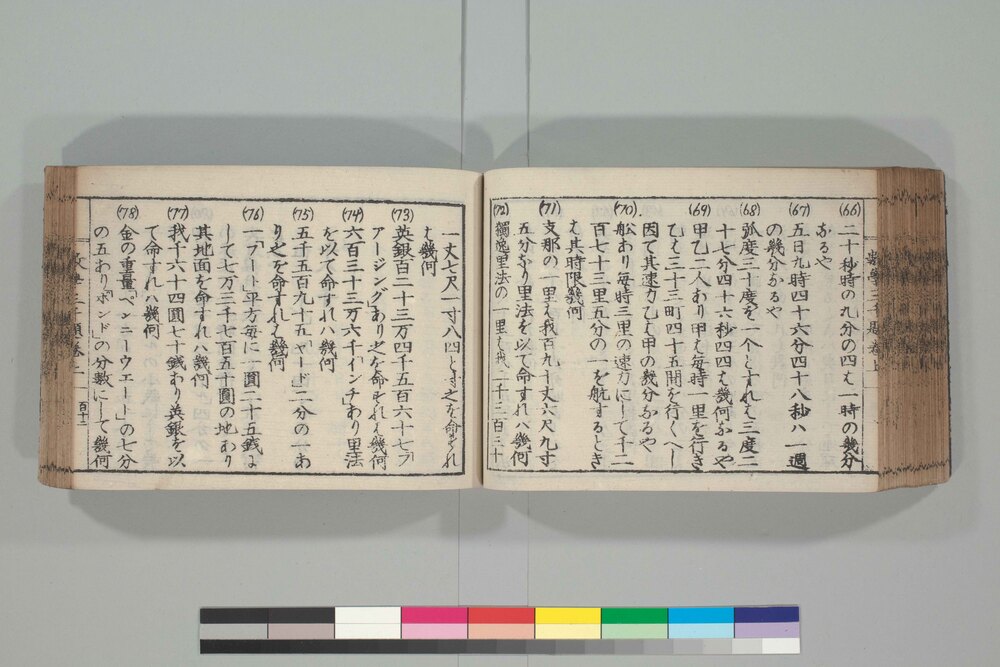 (66)
二十秒時の九分の四は一時の幾分
なるや
(67)
五日九時四十六分四十八秒ハ一週
の幾分なるや
(68)
弧度三十度を一个とすれは三度二
十七分四十六秒四四は幾何なるや
(69)
甲乙二人あり甲は毎時一里を行き
乙は三十三町四十五間を行くへし
因て其速力乙は甲の幾分なるや
(70)
舩あり毎時三里の速力にして千二
百七十三里五分の一を航するとき
は其時限幾何
(71)
支那の一里は我百九十丈六尺九寸
五分なり里法を以て命すれハ幾何
(72)
獨逸里法の一里は我二千三百三十
一丈七尺一寸八四とす之を命すれ
は幾何
(73)
英銀百二十三万四千五百六十七フ
アージングあり之を命すれは幾何
(74)
六百三十三万六千インチあり里法
を以て命すれハ幾何
(75)
五千五百九十五「ヤード」二分の一あ
り之を命すれは幾何
(76)
平方毎に一圓二十五銭に
して七万三千七百五十圓の地あり
其地面を命すれハ幾何
(77)
我千六十四圓七十銭あり英銀を以
て命すれハ幾何
(78)
金の重量「ペンニーウエート」の七分
の五あり「ポンド」の分数にして幾何
百十二